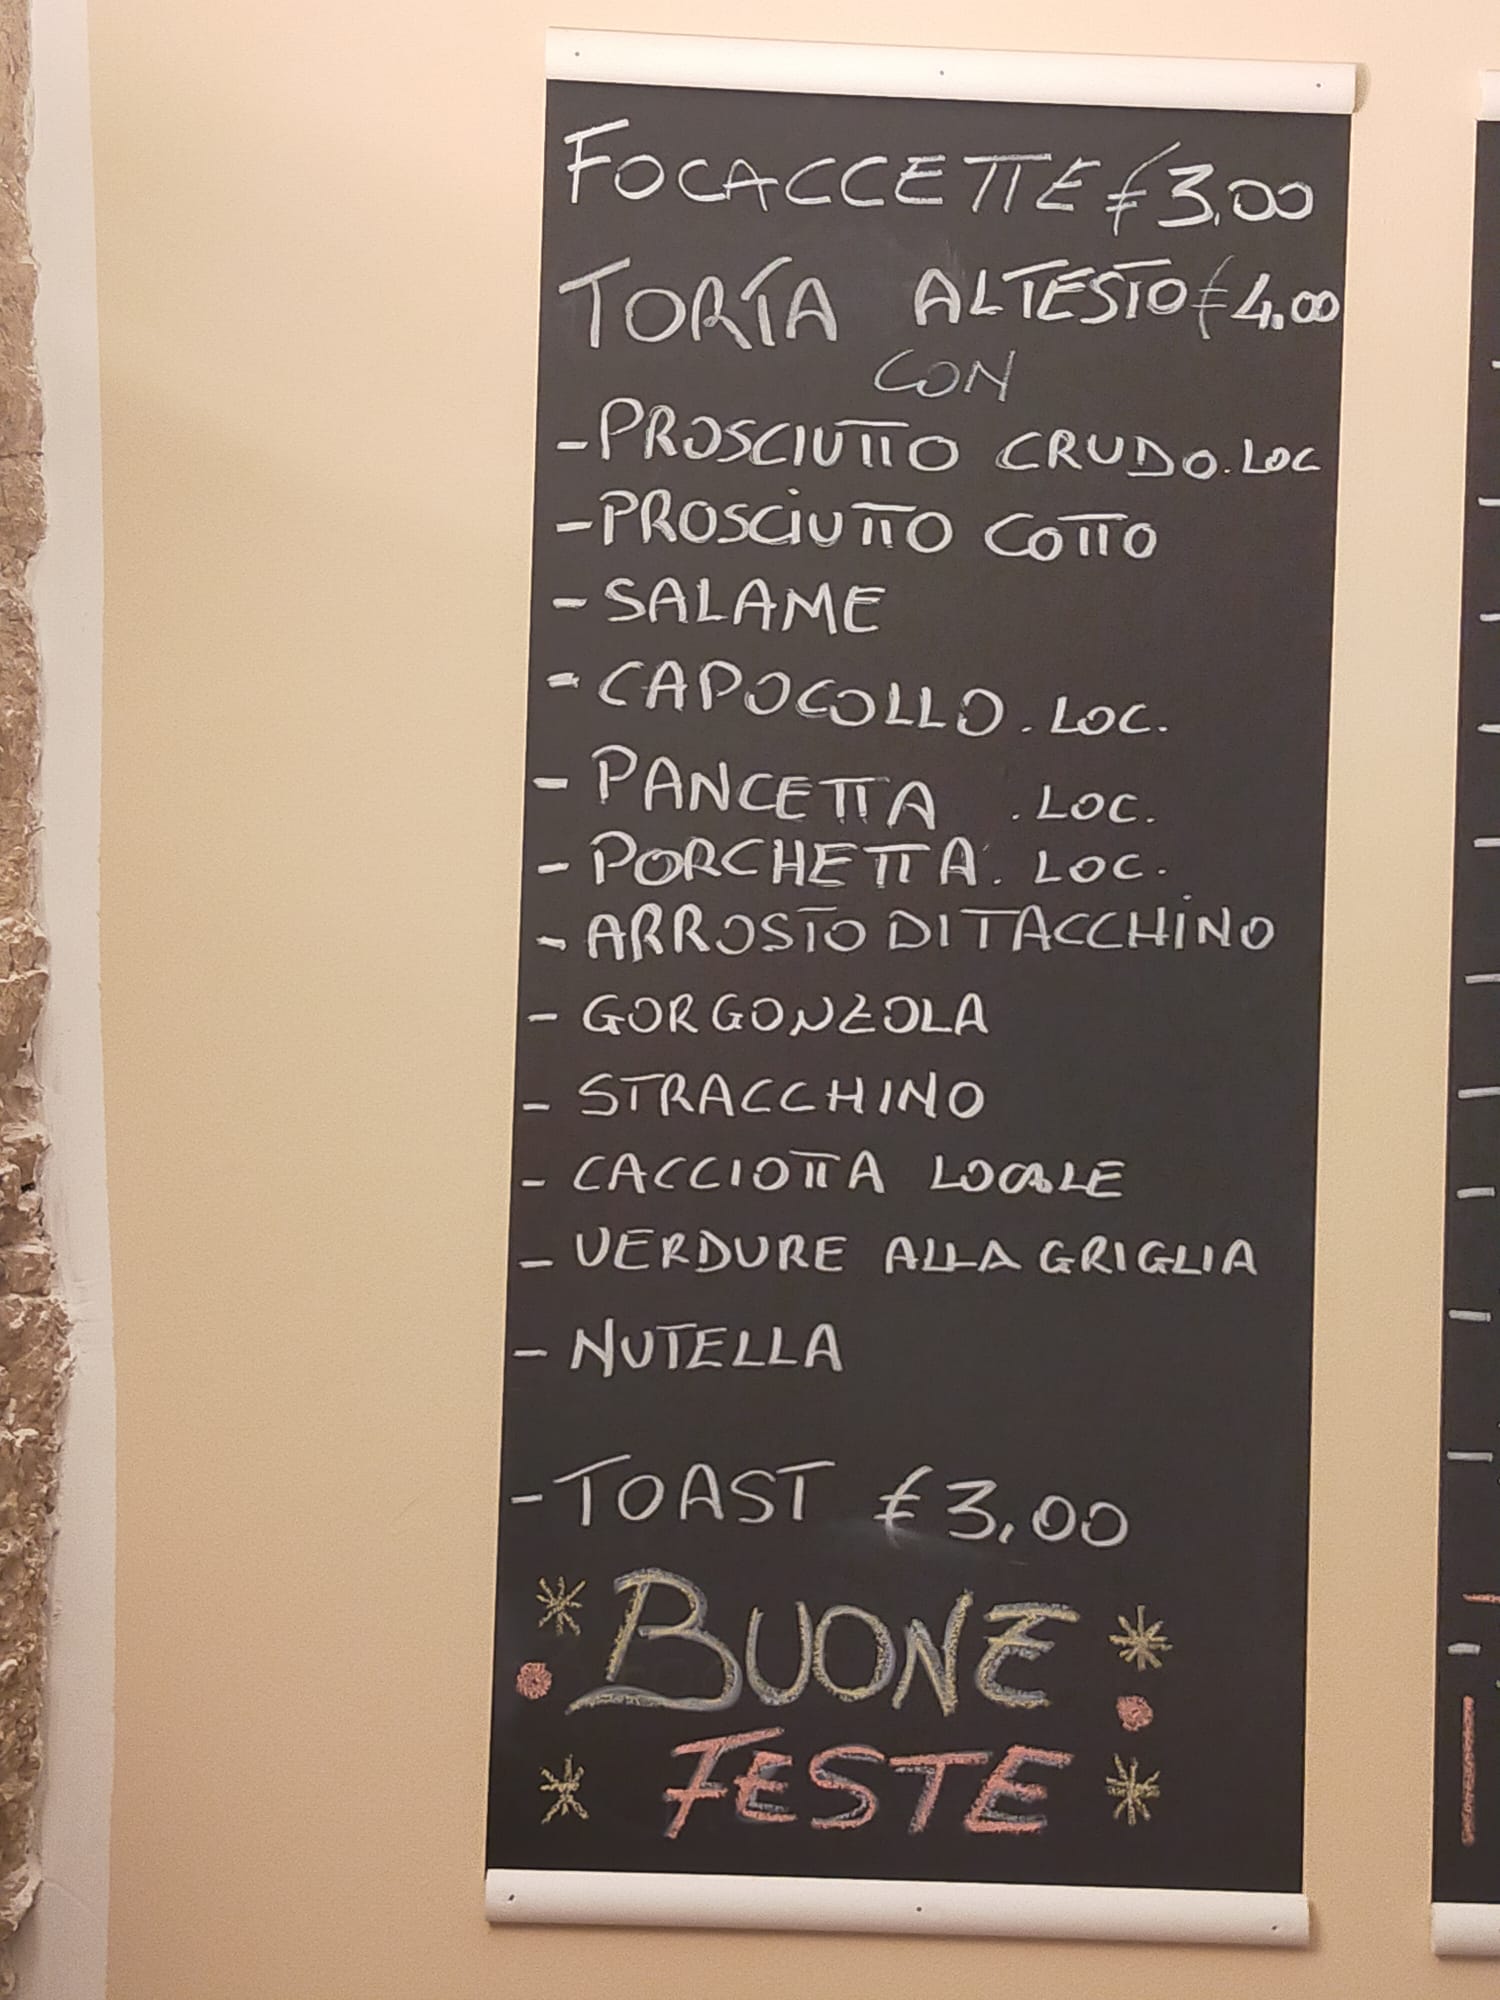 FOCACCETTE € 3,00
TORTA AL TESTO € 4,00
CON
- PROSCIUTTO CRUDO. LOC
- PROSCIUTTO COTTO
- SALAME
- CAPOCOLLO. LOC.
- PANCETTA . LOC.
- PORCHETTA. LOC.
- ARROSTO DI TACCHINO
- GORGONZOLA
- STRACCHINO
- CACCIOTTA LOCALE
- VERDURE ALLA GRIGLIA
- NUTELLA
- TOAST € 3,00
BUONE
FESTE